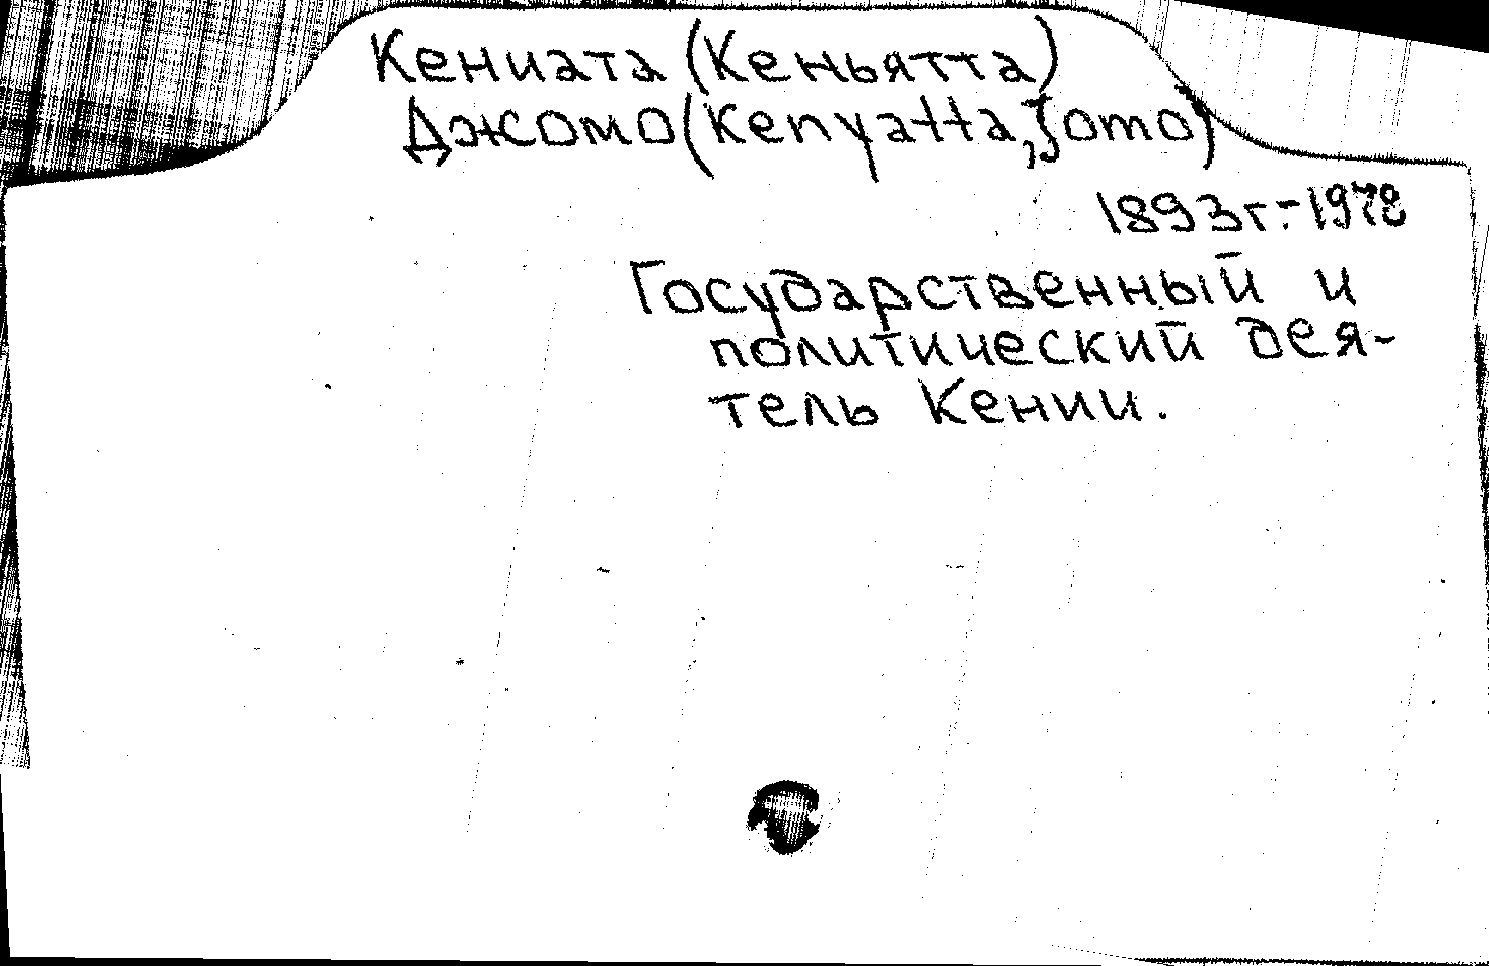 Кениата (Кеньятта)
Джомо (Kenyatta, Jomo)
1893г.-1978
Государственный и
политический дея-
тель Кении.